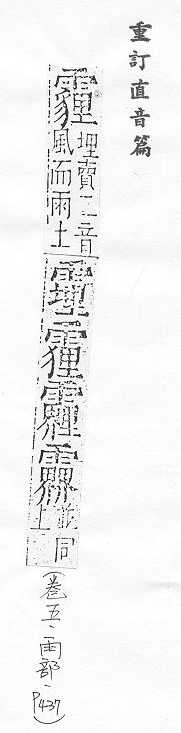 重訂直音篇
霾埋賣二音風而雨土
並同上
(卷五、雨部、P437)